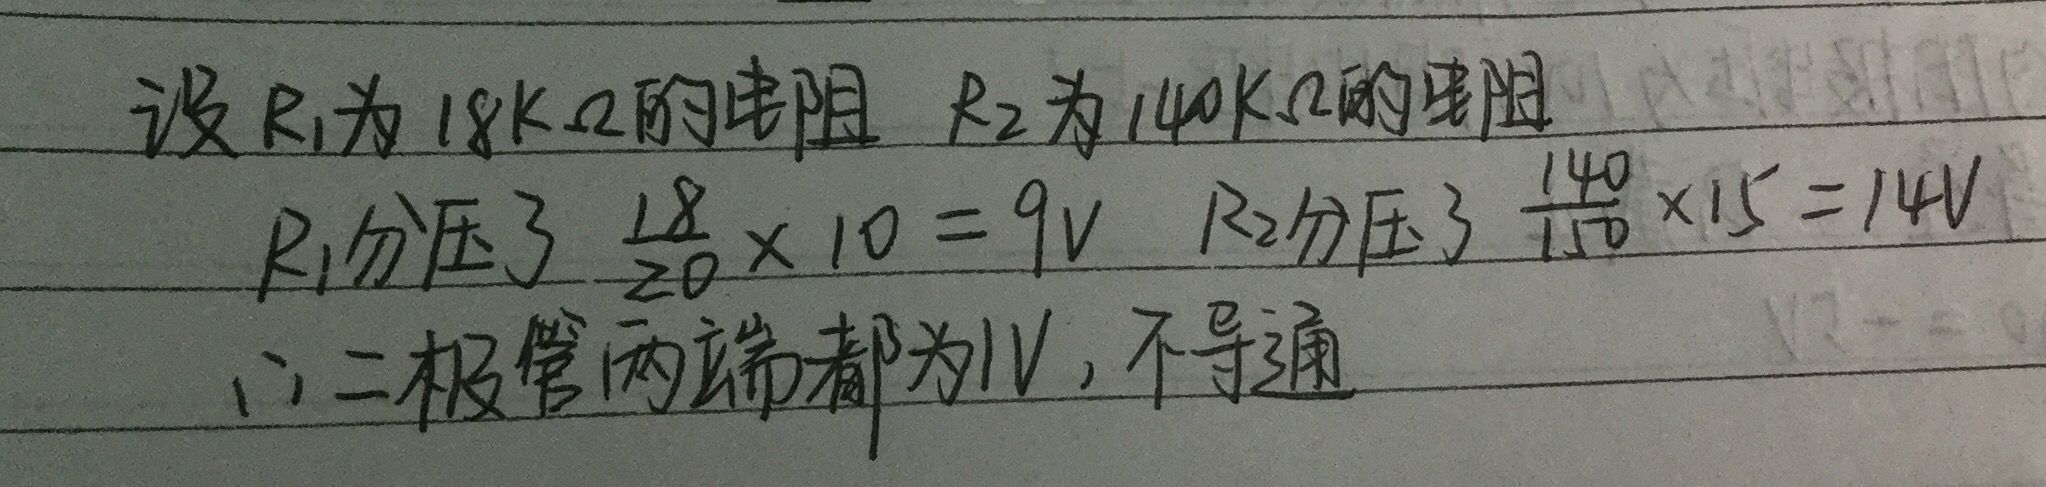 设R₁为18KΩ的电阻 R₂为140KΩ的电阻
R₁分压了 18/20 × 10 = 9V R₂分压了 140/150 × 15 = 14V
∴二极管两端都为1V,不导通